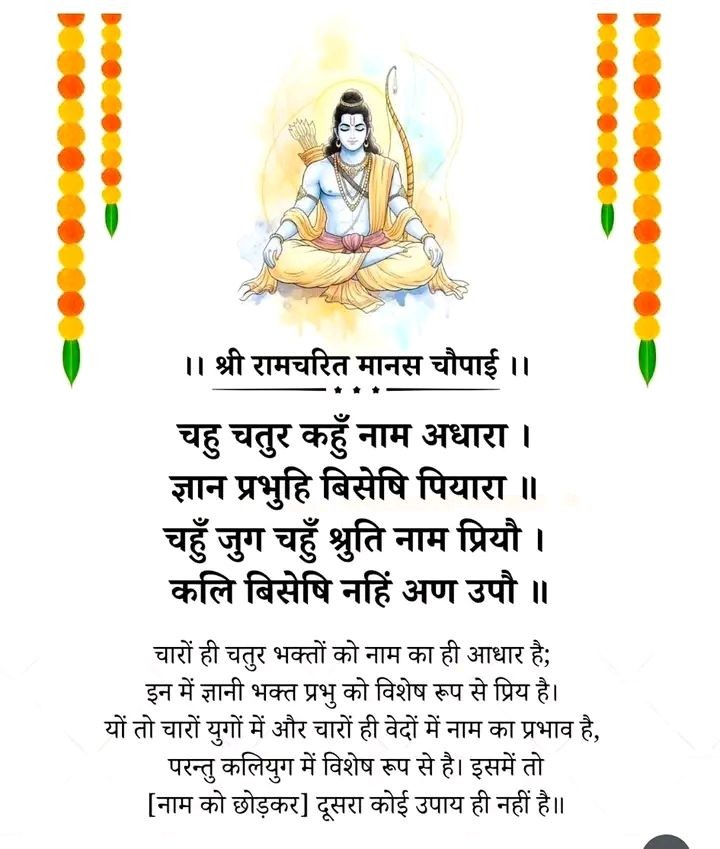 ।। श्री रामचरित मानस चौपाई ।।
चहु चतुर कहुँ नाम अधारा ।
ज्ञान प्रभुहि बिसेषि पियारा ॥
चहुँ जुग चहुँ श्रुति नाम प्रियौ ।
कलि बिसेषि नहिं अण उपौ ॥
चारों ही चतुर भक्तों को नाम का ही आधार है;
इन में ज्ञानी भक्त प्रभु को विशेष रूप से प्रिय है।
यों तो चारों युगों में और चारों ही वेदों में नाम का प्रभाव है,
परन्तु कलियुग में विशेष रूप से है। इसमें तो
[नाम को छोड़कर] दूसरा कोई उपाय ही नहीं है॥